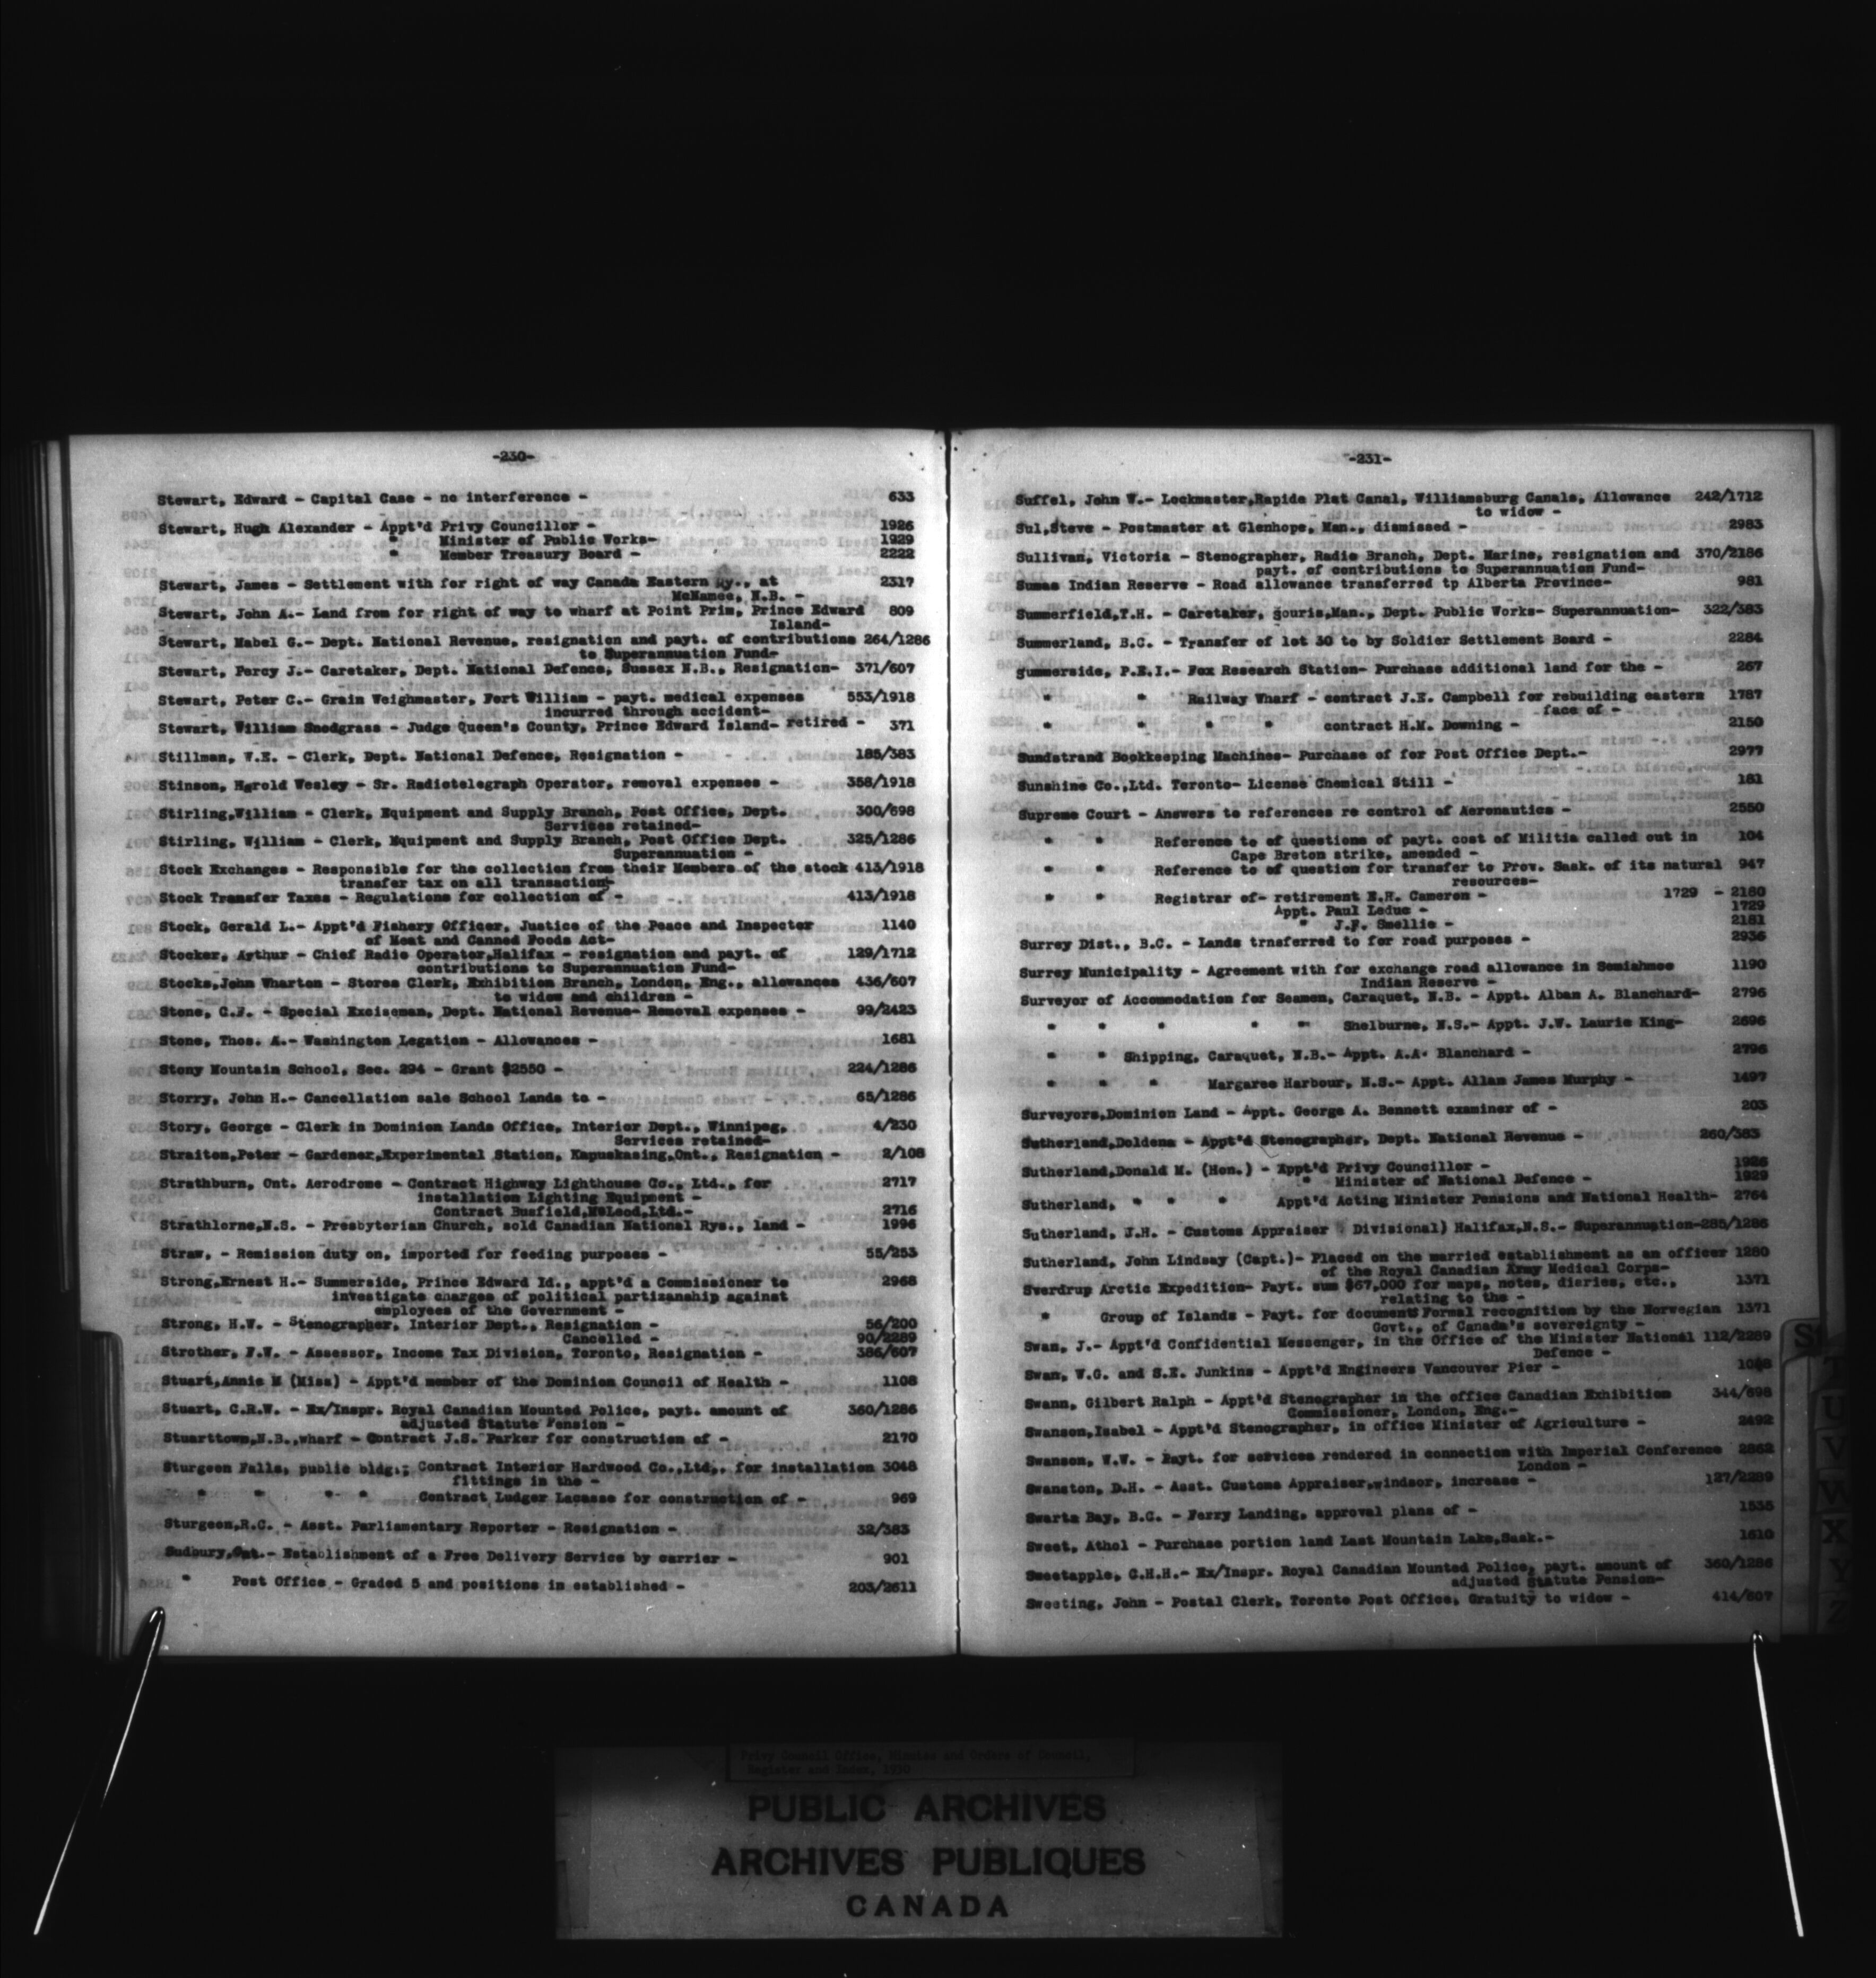 -230-
Stewart, Edward - Capital Case - no interference - 633
Stewart, Hugh Alexander - Appt'd Privy Councillor - 1926
" Minister of Public Works- 1929
" Member Treasury Board - 2222
Stewart, James - Settlement with for right of way Canada Eastern Ry., at 2317
McNamee, N.B. -
Stewart, John A.- Land from for right of way to wharf at Point Prim, Prince Edward 809
Island-
Stewart, Mabel G.- Dept. National Revenue, resignation and payt. of contributions 264/1286
to Superannuation Fund-
Stewart, Percy J.- Caretaker, Dept. National Defence, Sussex N.B., Resignation- 371/607
Stewart, Peter C.- Grain Weighmaster, Fort William - payt. medical expenses 553/1918
incurred through accident-
Stewart, William Snodgrass - Judge Queen's County, Prince Edward Island- retired - 371
Stillman, W.E. - Clerk, Dept. National Defence, Resignation - 185/383
Stinson, Harold Wesley - Sr. Radiotelegraph Operator, removal expenses - 358/1918
Stirling,William - Clerk, Equipment and Supply Branch, Post Office, Dept. 300/698
Services retained-
Stirling, William - Clerk, Equipment and Supply Branch, Post Office Dept. 325/1286
Superannuation -
Stock Exchanges - Responsible for the collection from their Members of the stock 413/1918
transfer tax on all transaction-
Stock Transfer Taxes - Regulations for collection of - 413/1918
Stock, Gerald L.- Appt'd Fishery Officer, Justice of the Peace and Inspector 1140
of Meat and Canned Foods Act-
Stocker, Arthur - Chief Radio Operator,Halifax - resignation and payt. of 129/1712
contributions to Superannuation Fund-
Stocks,John Wharton - Stores Clerk, Exhibition Branch, London, Eng., allowances 436/607
to widow and children -
Stone, C.F. - Special Exciseman, Dept. National Revenue- Removal expenses - 99/2423
Stone, Thos. A.- Washington Legation - Allowances - 1681
Stony Mountain School, Sec. 294 - Grant $2550 - 224/1286
Storry, John H.- Cancellation sale School Lands to - 65/1286
Story, George - Clerk in Dominion Lands Office, Interior Dept., Winnipeg, 4/230
Services retained-
Straiton,Peter - Gardener,Experimental Station, Kapuskasing,Ont., Resignation - 2/108
Strathburn, Ont. Aerodrome - Contract Highway Lighthouse Co., Ltd., for 2717
installation Lighting Equipment -
Contract Busfield,McLeod,Ltd.- 2716
Strathlorne,N.S. - Presbyterian Church, sold Canadian National Rys., land - 1996
Straw, - Remission duty on, imported for feeding purposes - 55/253
Strong,Ernest H.- Summerside, Prince Edward Id., appt'd a Commissioner to 2968
investigate charges of political partizanship against
employees of the Government -
Strong, H.W. - Stenographer, Interior Dept., Resignation - 56/200
Cancelled - 90/2289
Strother, F.W. - Assessor, Income Tax Division, Toronto, Resignation - 386/607
Stuart,Annie M (Miss) - Appt'd member of the Dominion Council of Health - 1108
Stuart, C.R.W. - Ex/Inspr. Royal Canadian Mounted Police, payt. amount of 360/1286
adjusted Statute Pension -
Stuarttown,N.B.,wharf - Contract J.S. Parker for construction of - 2170
Sturgeon Falls, public bldg., Contract Interior Hardwood Co.,Ltd., for installation 3048
fittings in the -
" " " " Contract Ludger Lacasse for construction of - 969
Sturgeon,R.C. - Asst. Parliamentary Reporter - Resignation - 32/383
Sudbury,Ont.- Establishment of a Free Delivery Service by carrier - 901
" Post Office - Graded 5 and positions in established - 203/2611
-231-
Suffel, John W.- Lockmaster,Rapide Plat Canal, Williamsburg Canals, Allowance 242/1712
to widow -
Sul,Steve - Postmaster at Glenhope, Man., dismissed - 2983
Sullivan, Victoria - Stenographer, Radio Branch, Dept. Marine, resignation and 370/2186
payt. of contributions to Superannuation Fund-
Sumas Indian Reserve - Road allowance transferred tp Alberta Province- 981
Summerfield,T.H. - Caretaker, Souris,Man., Dept. Public Works- Superannuation- 322/383
Summerland, B.C. - Transfer of lot 30 to by Soldier Settlement Board - 2284
Summerside, P.E.I.- Fox Research Station- Purchase additional land for the - 267
" " Railway Wharf - contract J.E. Campbell for rebuilding eastern 1787
face of -
" " " " contract H.M. Downing - 2150
Sundstrand Bookkeeping Machines- Purchase of for Post Office Dept.- 2977
Sunshine Co.,Ltd. Toronto- License Chemical Still - 181
Supreme Court - Answers to references re control of Aeronautics - 2550
" " Reference to of questions of payt. cost of Militia called out in 104
Cape Breton strike, amended -
" " Reference to of question for transfer to Prov. Sask. of its natural 947
resources-
" " Registrar of- retirement E.R. Cameron - 1729 - 2180
Appt. Paul Leduc - 1729
" J.F. Smellie - 2181
Surrey Dist., B.C. - Lands trnsferred to for road purposes - 2936
Surrey Municipality - Agreement with for exchange road allowance in Semiahmoo 1190
Indian Reserve -
Surveyor of Accommodation for Seamen, Caraquet, N.B. - Appt. Alban A. Blanchard- 2796
" " " " " Shelburne, N.S.- Appt. J.W. Laurie King- 2696
" " Shipping, Caraquet, N.B.- Appt. A.A. Blanchard - 2796
" " " Margaree Harbour, N.S.- Appt. Allan James Murphy - 1497
Surveyors,Dominion Land - Appt. George A. Bennett examiner of - 203
Sutherland,Doldena - Appt'd Stenographer, Dept. National Revenue - 260/383
Sutherland,Donald M. (Hon.) - Appt'd Privy Councillor - 1926
" Minister of National Defence - 1929
Sutherland, " " " Appt'd Acting Minister Pensions and National Health- 2764
Sutherland, J.H. - Customs Appraiser Divisional) Halifax,N.S.- Superannuation-285/1286
Sutherland, John Lindsay (Capt.)- Placed on the married establishment as an officer 1280
of the Royal Canadian Army Medical Corps-
Sverdrup Arctic Expedition- Payt. sum $67,000 for maps, notes, diaries, etc., 1371
relating to the -
" Group of Islands - Payt. for documents Formal recognition by the Norwegian 1371
Govt., of Canada's sovereignty -
Swan, J.- Appt'd Confidential Messenger, in the Office of the Minister National 112/2289
Defence -
Swan, W.G. and S.E. Junkins - Appt'd Engineers Vancouver Pier -
Swann, Gilbert Ralph - Appt'd Stenographer in the office Canadian Exhibition 344/698
Commissioner, London, Eng.-
Swanson,Isabel - Appt'd Stenographer, in office Minister of Agriculture - 2492
Swanson, W.W. - Payt. for services rendered in connection with Imperial Conference 2862
London -
Swanston, D.H. - Asst. Customs Appraiser,windsor, increase - 127/2289
Swartz Bay, B.C. - Ferry Landing, approval plans of - 1535
Sweet, Athol - Purchase portion land Last Mountain Lake,Sask.- 1610
Sweetapple, C.H.H.- Ex/Inspr. Royal Canadian Mounted Police, payt. amount of 360/1286
adjusted Statute Pension-
Sweeting, John - Postal Clerk, Toronto Post Office, Gratuity to widow - 414/607
S
T
U
V
W
X
Y
Z
Privy Council Office, Minutes and Orders of Council,
Register and Index, 1930
PUBLIC ARCHIVES
ARCHIVES PUBLIQUES
CANADA